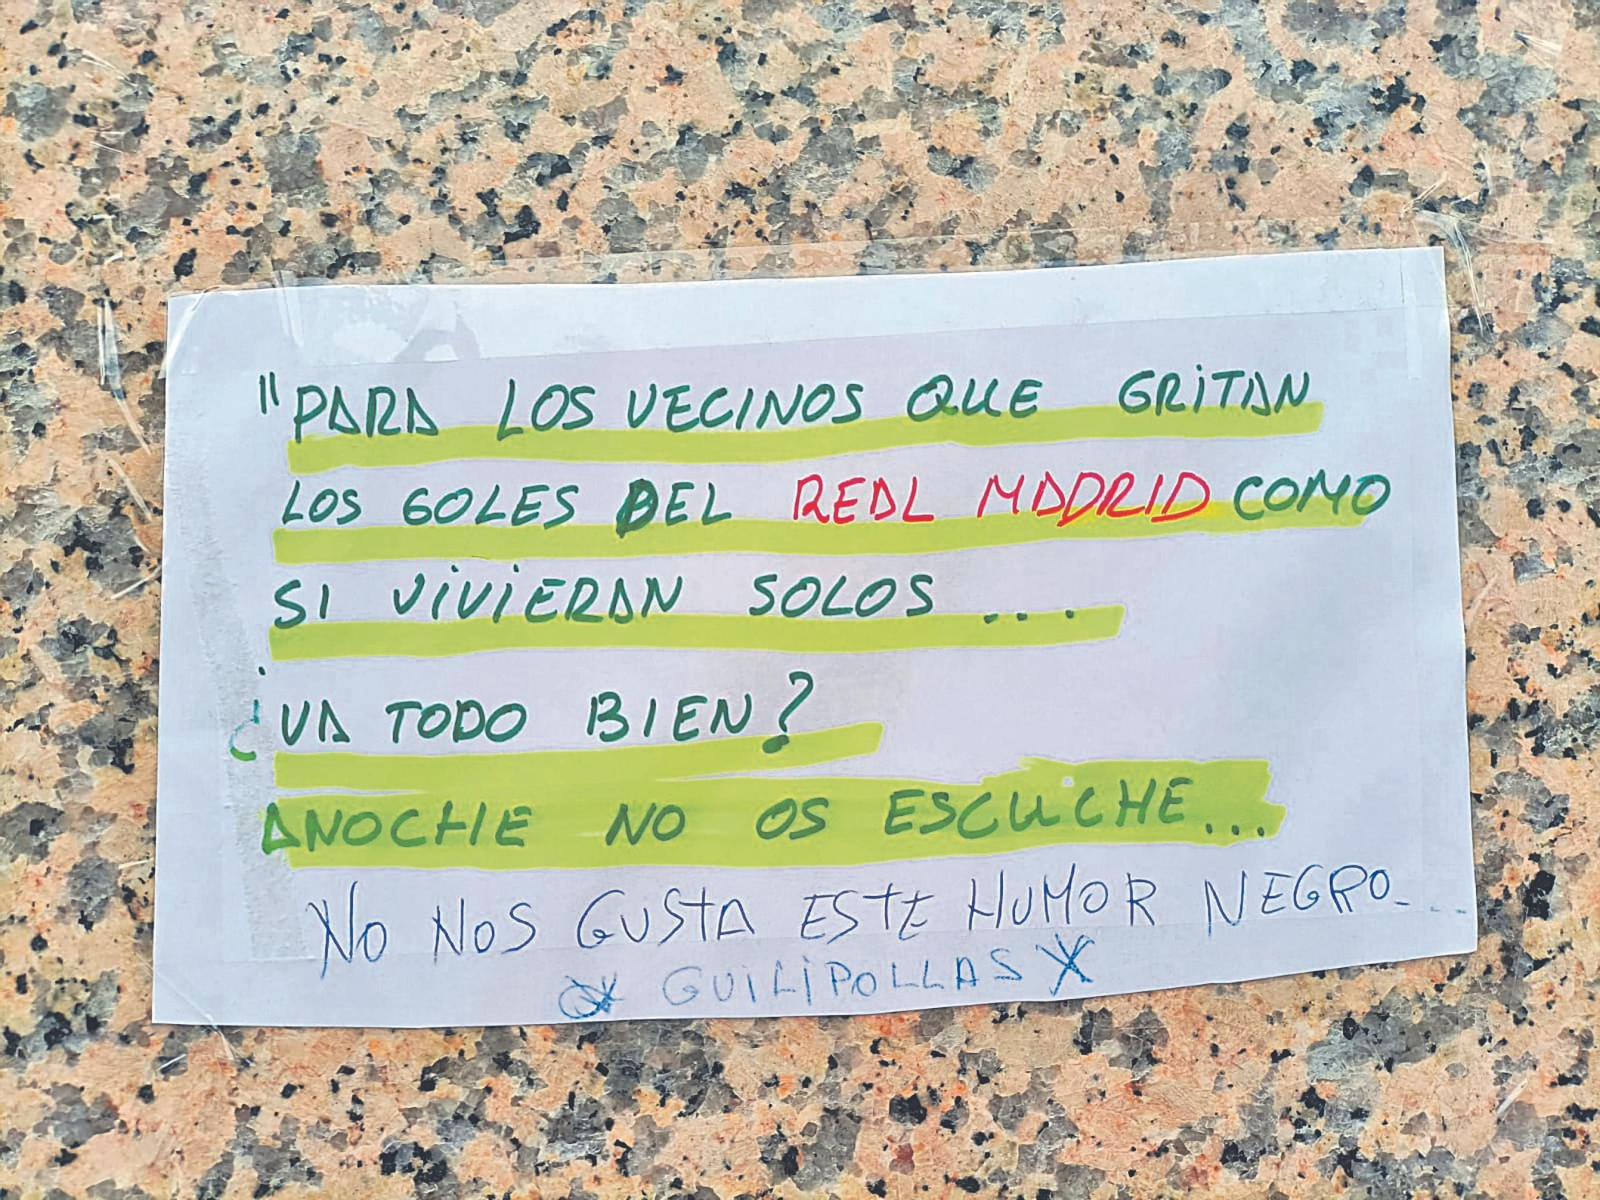 "PARA LOS VECINOS QUE GRITAN
LOS GOLES DEL REAL MADRID COMO
SI VIVIERAN SOLOS ...
¿VA TODO BIEN?
ANOCHE NO OS ESCUCHE...
NO NOS GUSTA ESTE HUMOR NEGRO...
GUILIPOLLAS